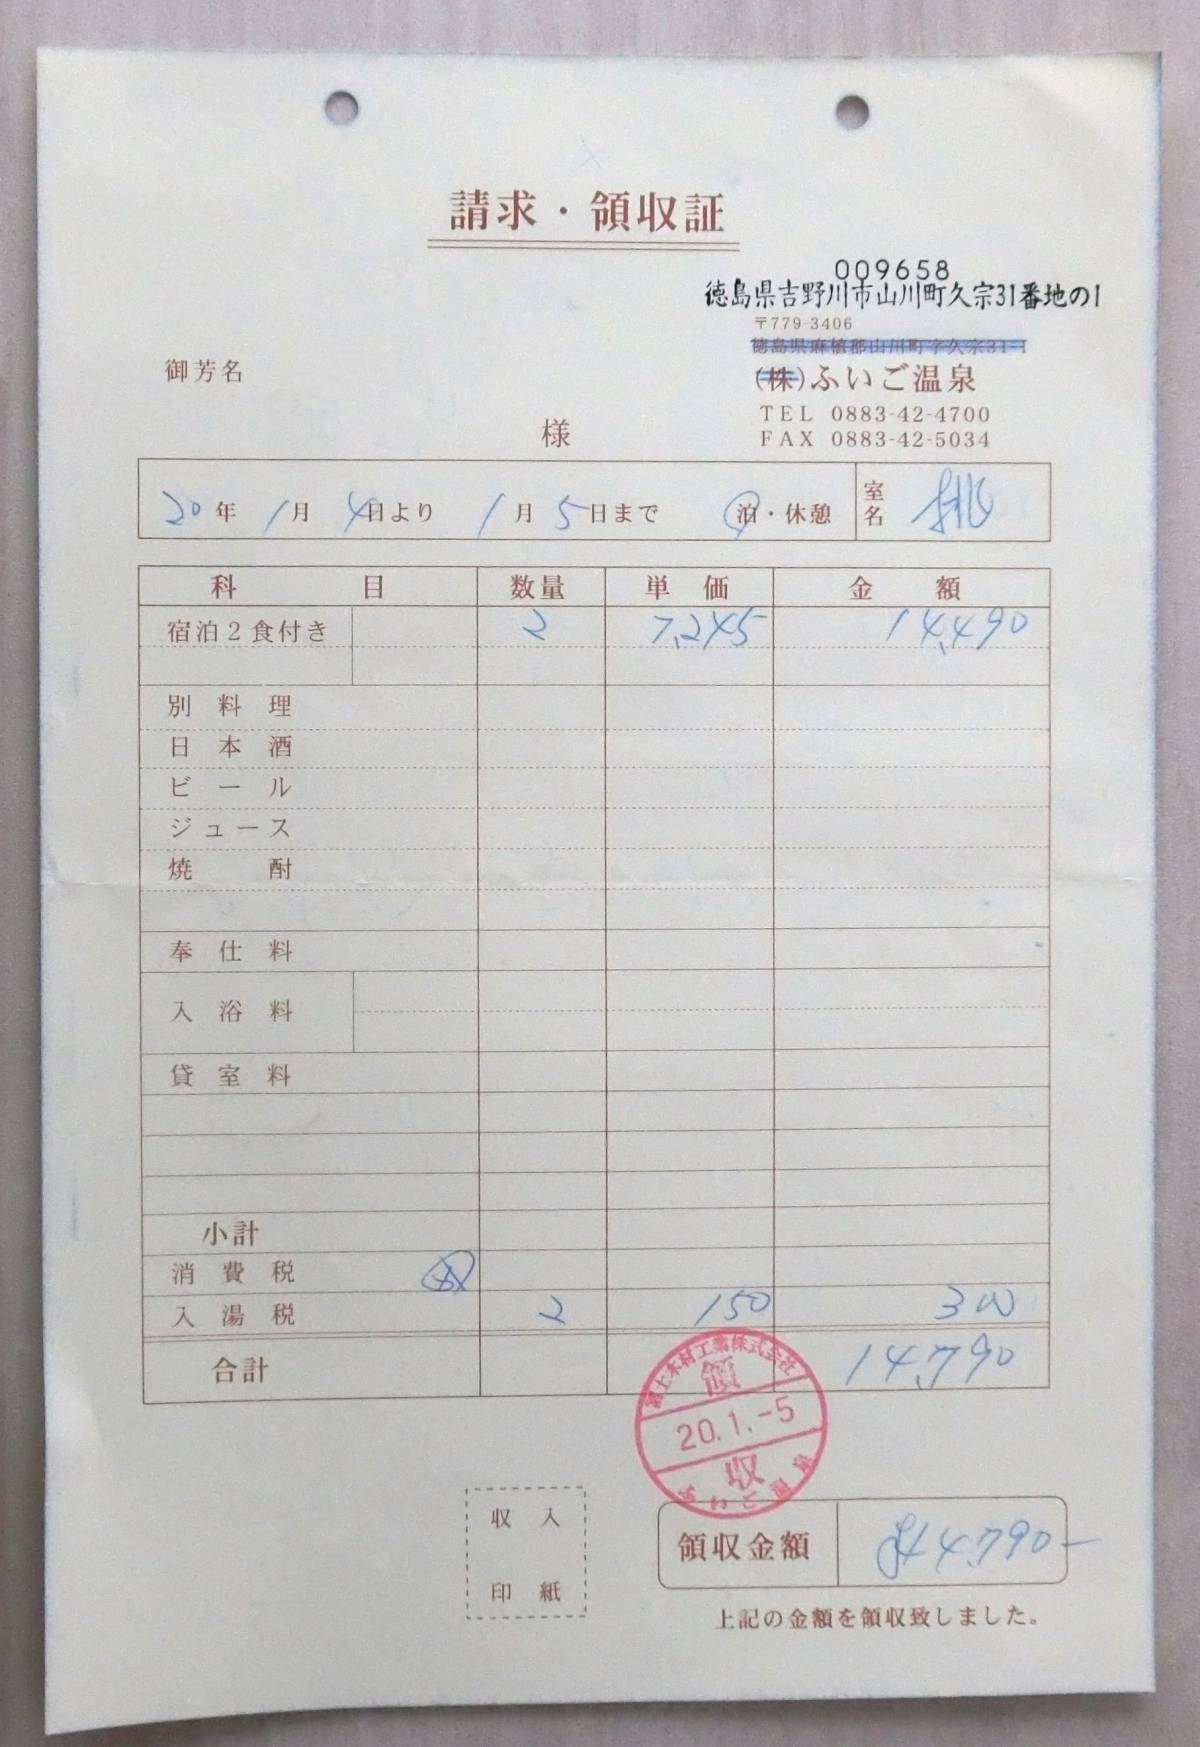 請求・領収証
009658
徳島県吉野川市山川町久宗31番地の1
〒779-3406
徳島県麻植郡山川町字久宗31-1
(株)ふいご温泉
御芳名
TEL 0883-42-4700
様
FAX 0883-42-5034
20年 1月 4日より 1月 5日まで 泊・休憩 室名 桃
科目 数量 単価 金額
宿泊2食付き 2 7,245 14,490
別料理
日本酒
ビール
ジュース
焼酎
奉仕料
入浴料
貸室料
小計
消費税
入湯税 2 150 300
合計 14,790
富士木材工業株式会社
領
20.1.-5
収
ふいご温泉
収入
印紙
領収金額 ¥14,790-
上記の金額を領収致しました。